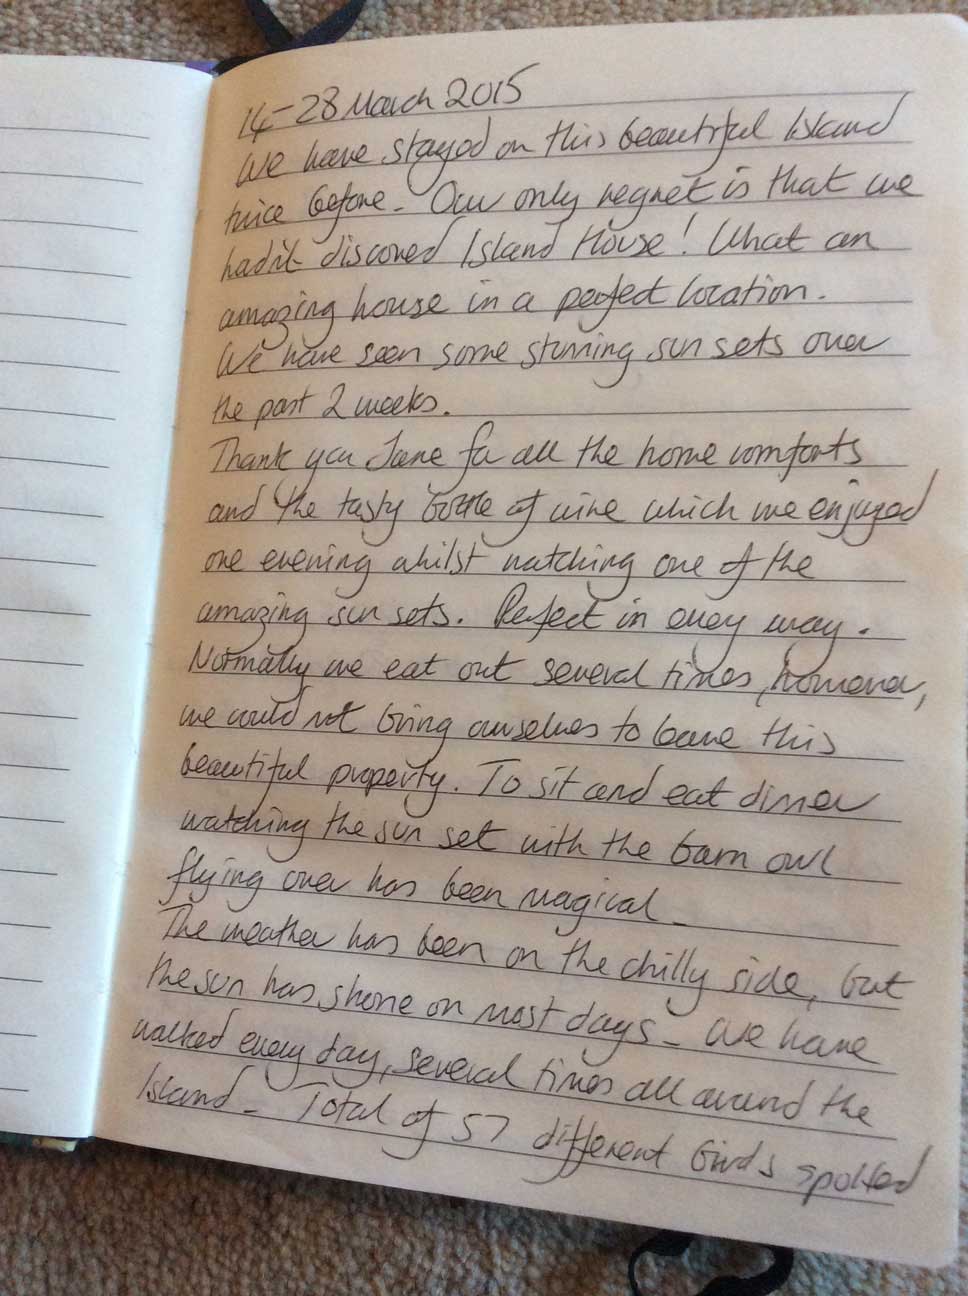 14-28 March 2015
We have stayed on this beautiful Island
twice before. Our only regret is that we
hadn't discoved Island House! What an
amazing house in a perfect location.
We have seen some stunning sun sets over
the past 2 weeks.
Thank you Jane for all the home comforts
and the tasty bottle of wine which we enjoyed
one evening whilst watching one of the
amazing sun sets. Perfect in every way.
Normally we eat out several times, however,
we could not bring ourselves to leave this
beautiful property. To sit and eat dinner
watching the sun set with the barn owl
flying over has been magical.
The weather has been on the chilly side, but
the sun has shone on most days - We have
walked every day, several times all around the
Island - Total of 57 different birds spotted